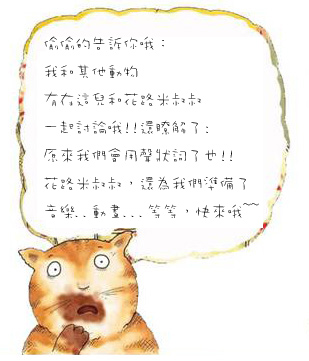 偷偷的告訴你哦：
我和其他動物
有在這兒和花路米叔叔
一起討論哦!!還瞭解了:
原來我們會用聲狀詞了也!!
花路米叔叔，還為我們準備了
音樂..動畫...等等，快來哦~~